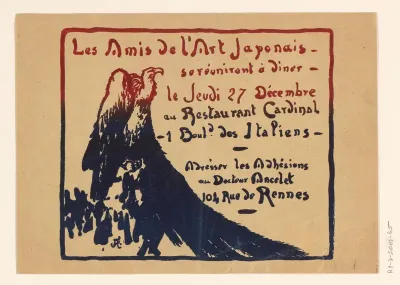 Les Amis de l'Art Japonais -
se réuniront à dîner -
le Jeudi 27 Décembre
au Restaurant Cardinal
- 1 Boulᵈ des Italiens -
Adresser les Adhésions
au Docteur Ancelet
104 Rue de Rennes